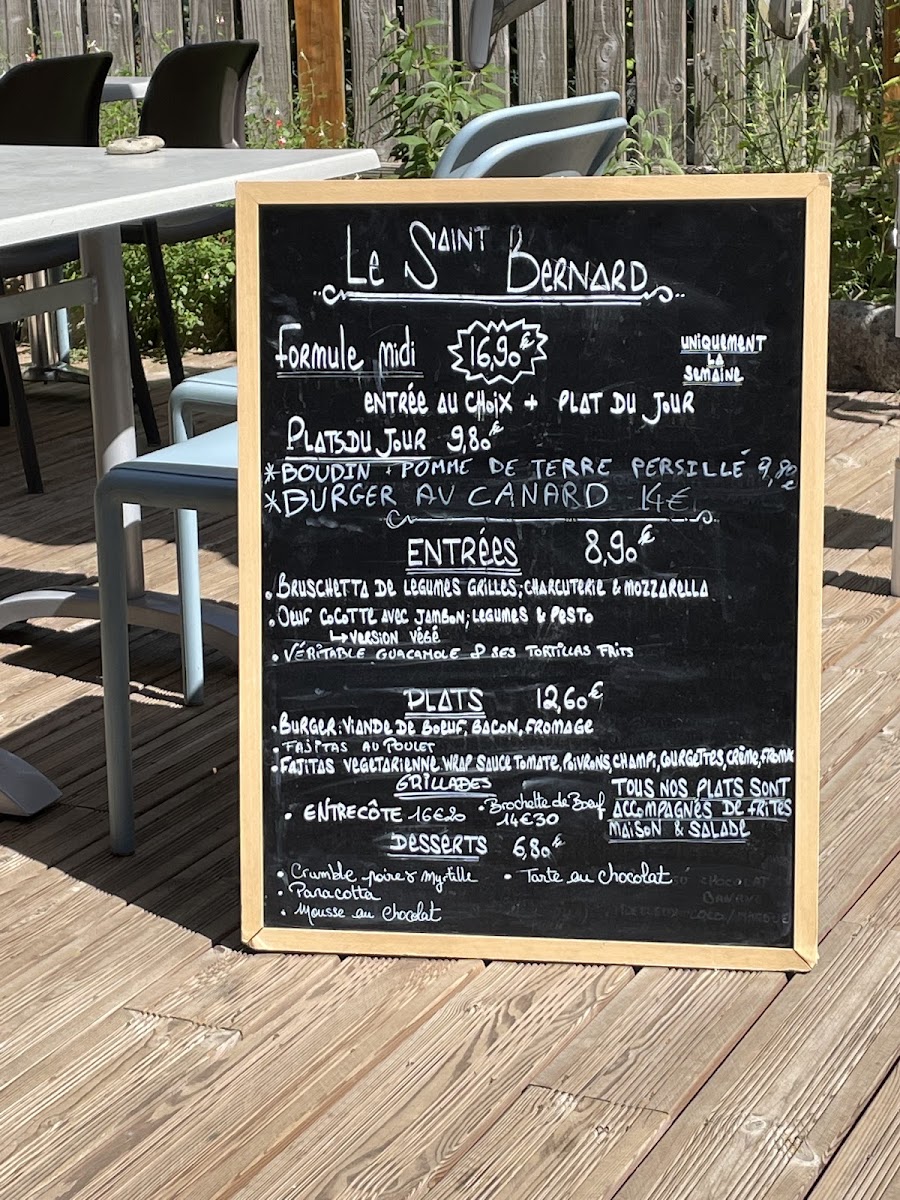 Le SAINT BERNARD
Formule midi 16,90€ UNIQUEMENT
LA
SEMAINE
ENTRÉE AU CHOIX + PLAT DU JOUR
PLATS DU JOUR 9,80€
*BOUDIN + POMME DE TERRE PERSILLÉ 9,80€
*BURGER AU CANARD 14€
ENTRÉES 8,90€
• BRUSCHETTA DE LEGUMES GRILLES; CHARCUTERIE & MOZZARELLA
• OEUF COCOTTE AVEC JAMBON; LEGUMES & PESTO
↳ VERSION VÉGÉ
• VÉRITABLE GUACAMOLE & SES TORTILLAS FRITS
PLATS 12,60€
• BURGER: VIANDE DE BOEUF, BACON, FROMAGE
• FAJITAS AU POULET
• FAJITAS VEGETARIENNE WRAP SAUCE TOMATE, POIVRONS, CHAMPI, COURGETTES, CRÈME, FROMA
GRILLADES
• ENTRECÔTE 16€20 • Brochette de Boeuf
14€30
TOUS NOS PLATS SONT
ACCOMPAGNÉS DE FRITES
MAISON & SALADE
DESSERTS 6,80€
• Crumble poire & Myrtille • Tarte au chocolat
• Panacotta
• Mousse au chocolat